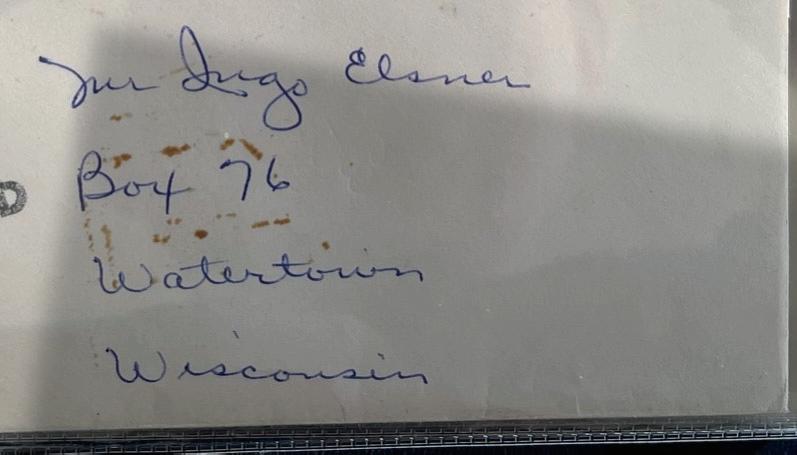 Mr Ingo Elsner
Box 76
Watertown
Wisconsin